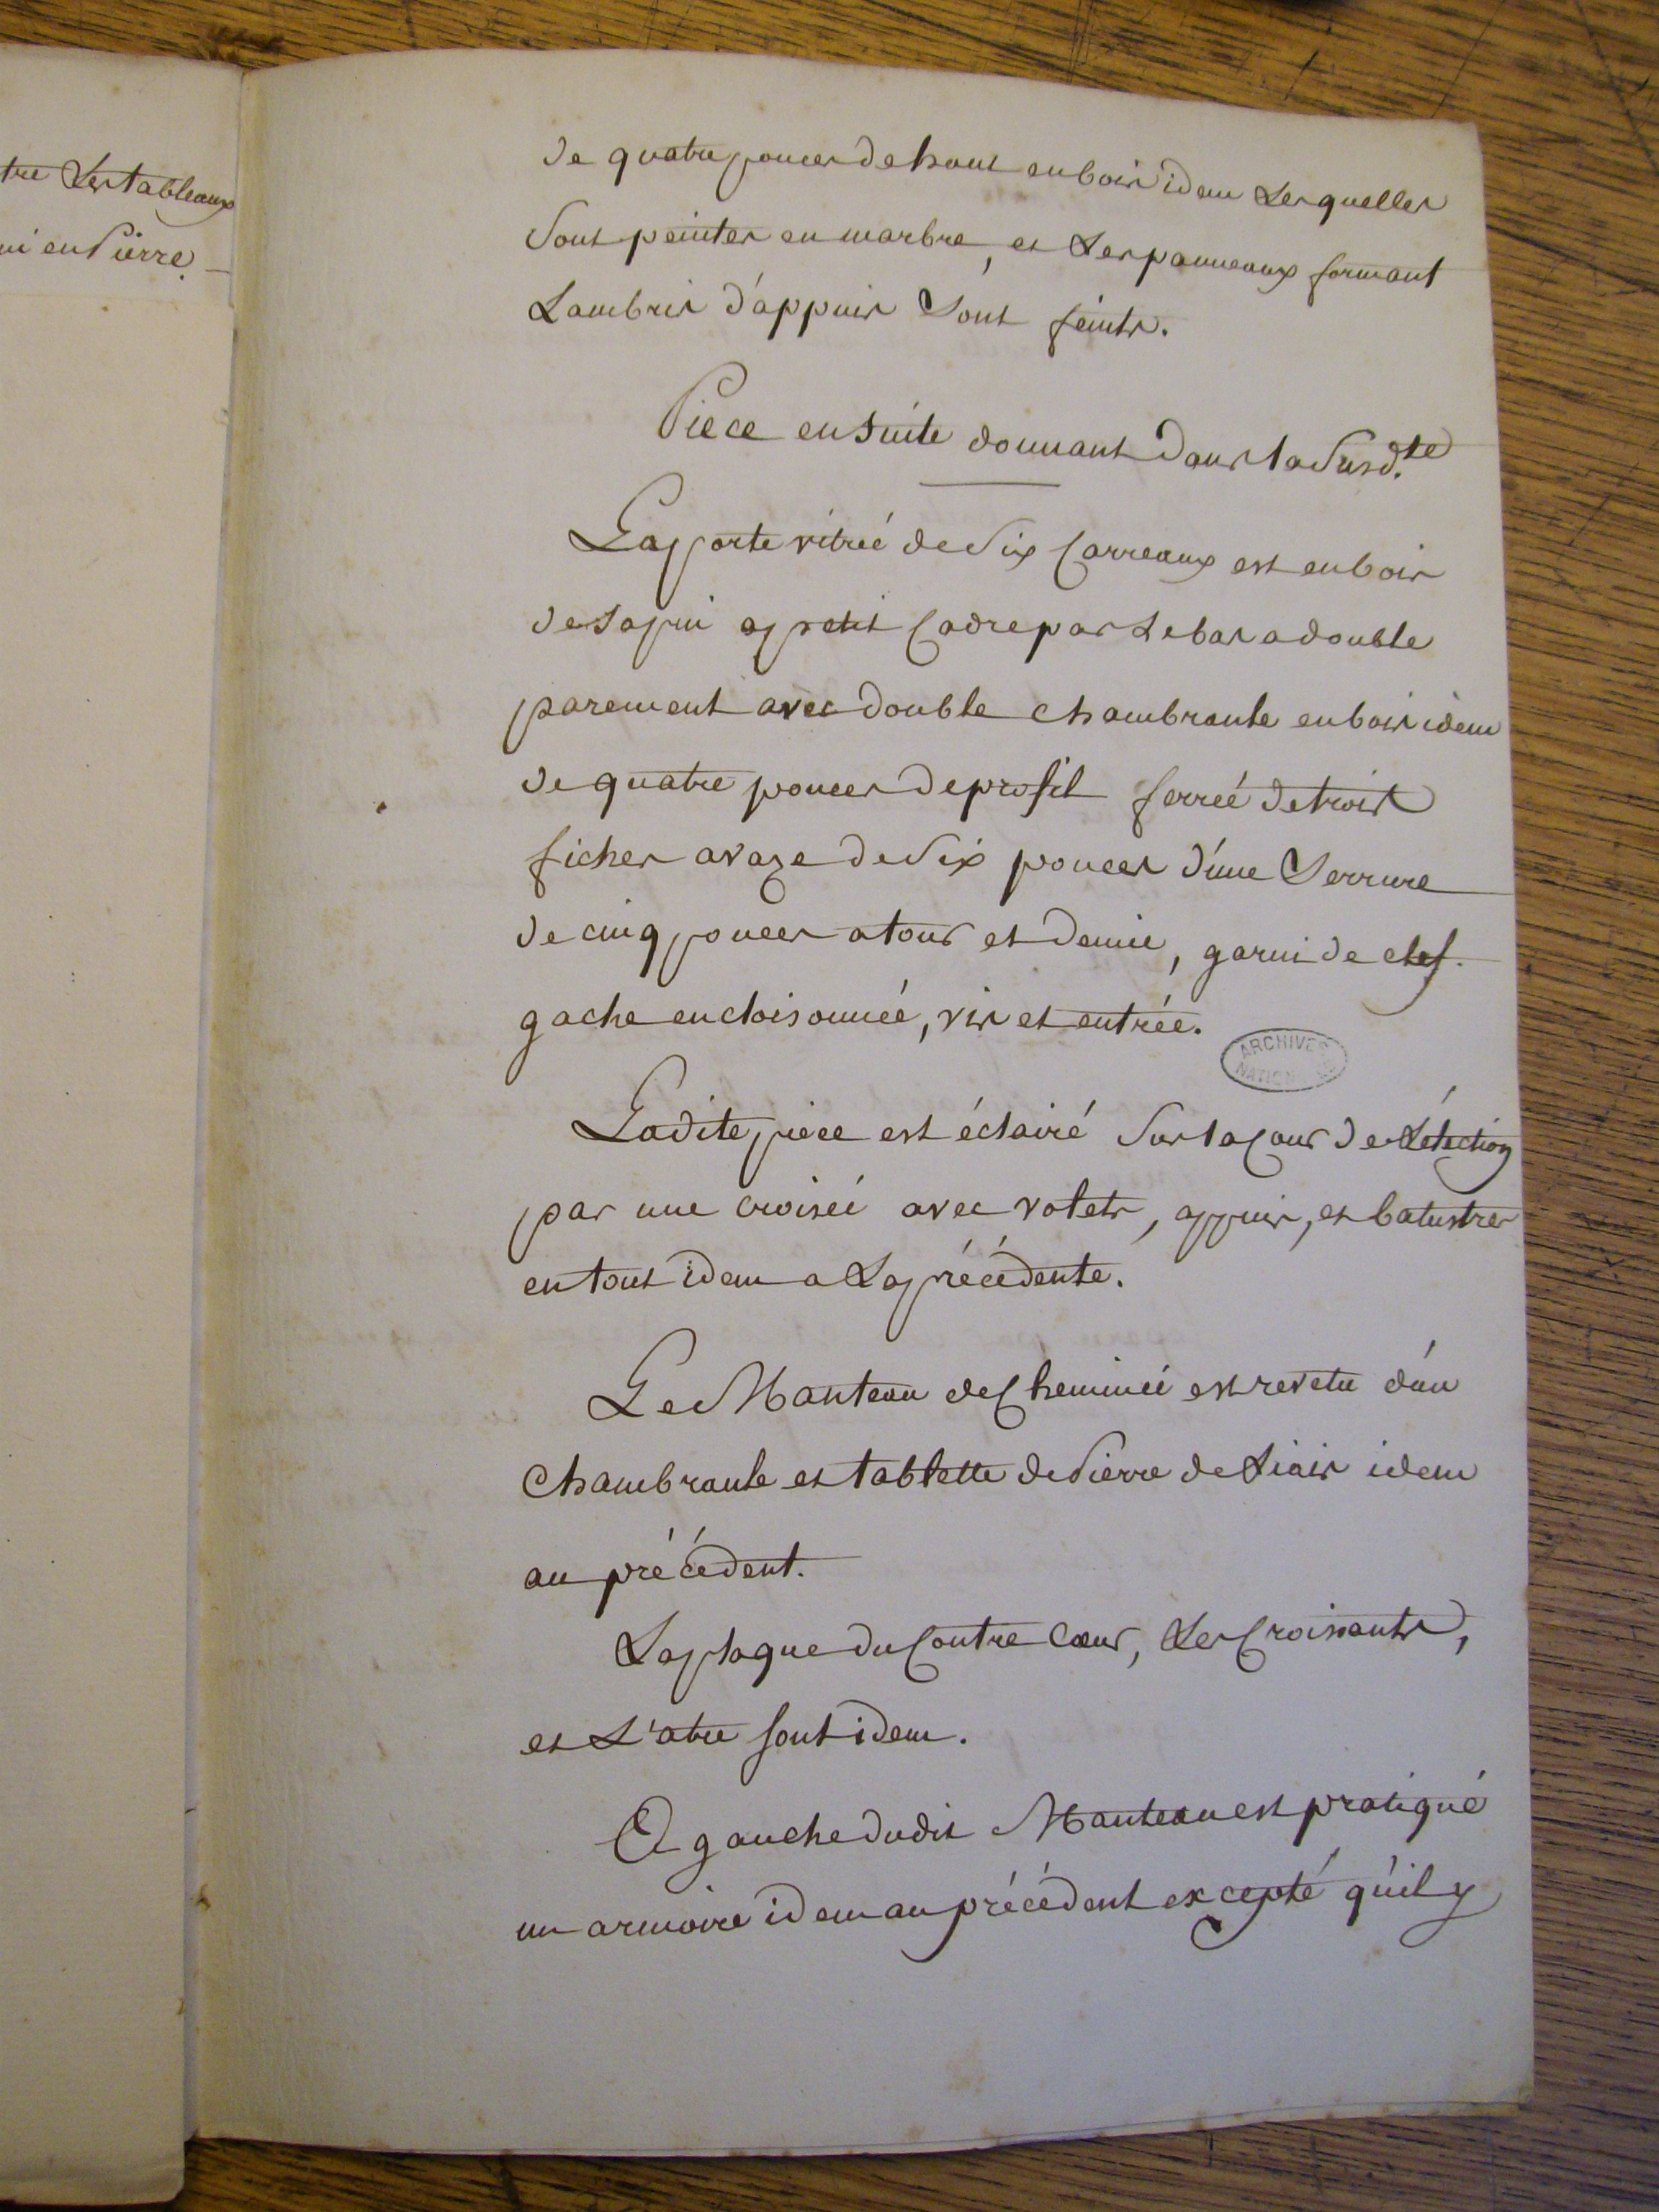 tre Les tableaux
ni en Pierre.
de quatre pouces de haut en bois idem Lesquelles
Sont peintes en marbre, et Les panneaux formant
Lambris d'appuis Sont feints.
Piece ensuite donnant dans la Susd.te
La porte vitreé de Six Carreaux est en bois
de Sapin a petit Cadre par Le bas a double
parement avec double chambranle en bois idem
de quatre pouces de profil ferreé de trois
fiches a vaze de Six pouces d'une Serrure
de cinq pouces a tour et demie, garni de clef.
gache encloisonneé, vis et entrée.
ARCHIVES
NATION
Ladite piece est éclairé Sur la Cour de L'élection
par une croiseé avec volets, appuis, et balustres
en tout idem a La précédente.
Le Manteau de Chemineé est revetu d'un
Chambranle et tablette de Pierre de Liais idem
au précédent.
La plaque du Contre Cœur, Les Croissants,
et L'atre sont idem.
A gauche dudit Manteau est pratiqué
un armoire idem au précédent excepté qu'il y